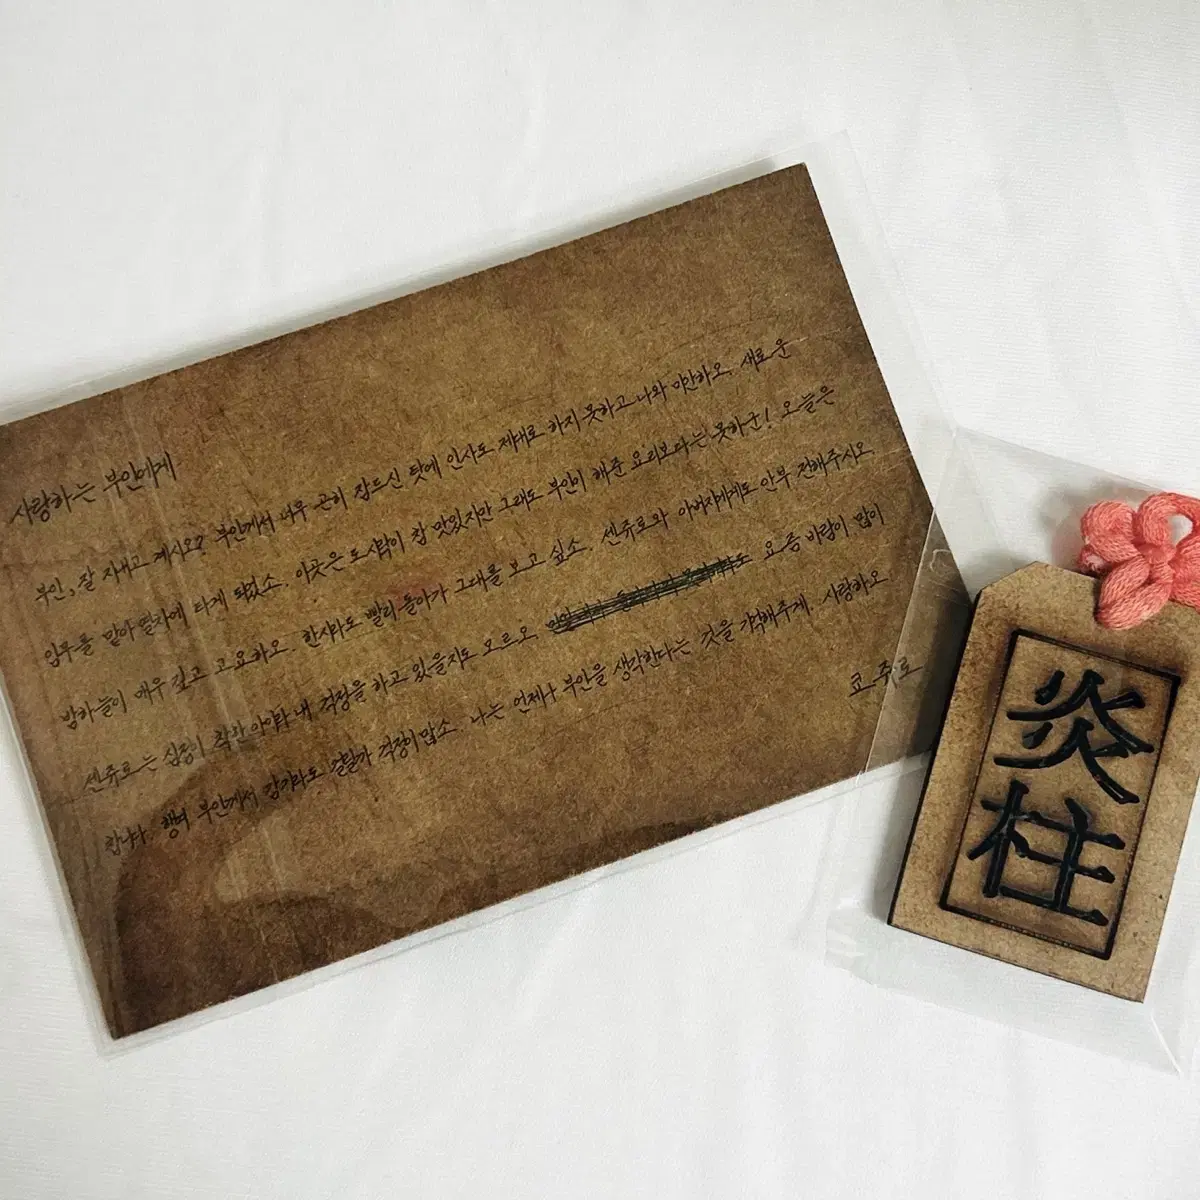 사랑하는 부인에게
부인, 잘 지내고 계시오? 부인께서 너무 곤히 잠드신 탓에 인사도 제대로 하지 못하고 나와 미안하오. 새로운
임무를 맡아 열차에 타게 되었소. 이곳은 도시락이 참 맛있지만 그래도 부인이 해준 요리보다는 못하군! 오늘은
밤하늘이 매우 깊고 고요하오. 한시라도 빨리 돌아가 그대를 보고 싶소. 센쥬로와 아버지에게도 안부 전해주시오.
센쥬로는 심성이 착한 아이라 내 걱정을 하고 있을지도 모르오. 요즘 바람이 많이
찹니다. 행여 부인께서 감기라도 걸릴까 걱정이 많소. 나는 언제나 부인을 생각한다는 것을 기억해주게. 사랑하오.
쿄쥬로
炎
柱